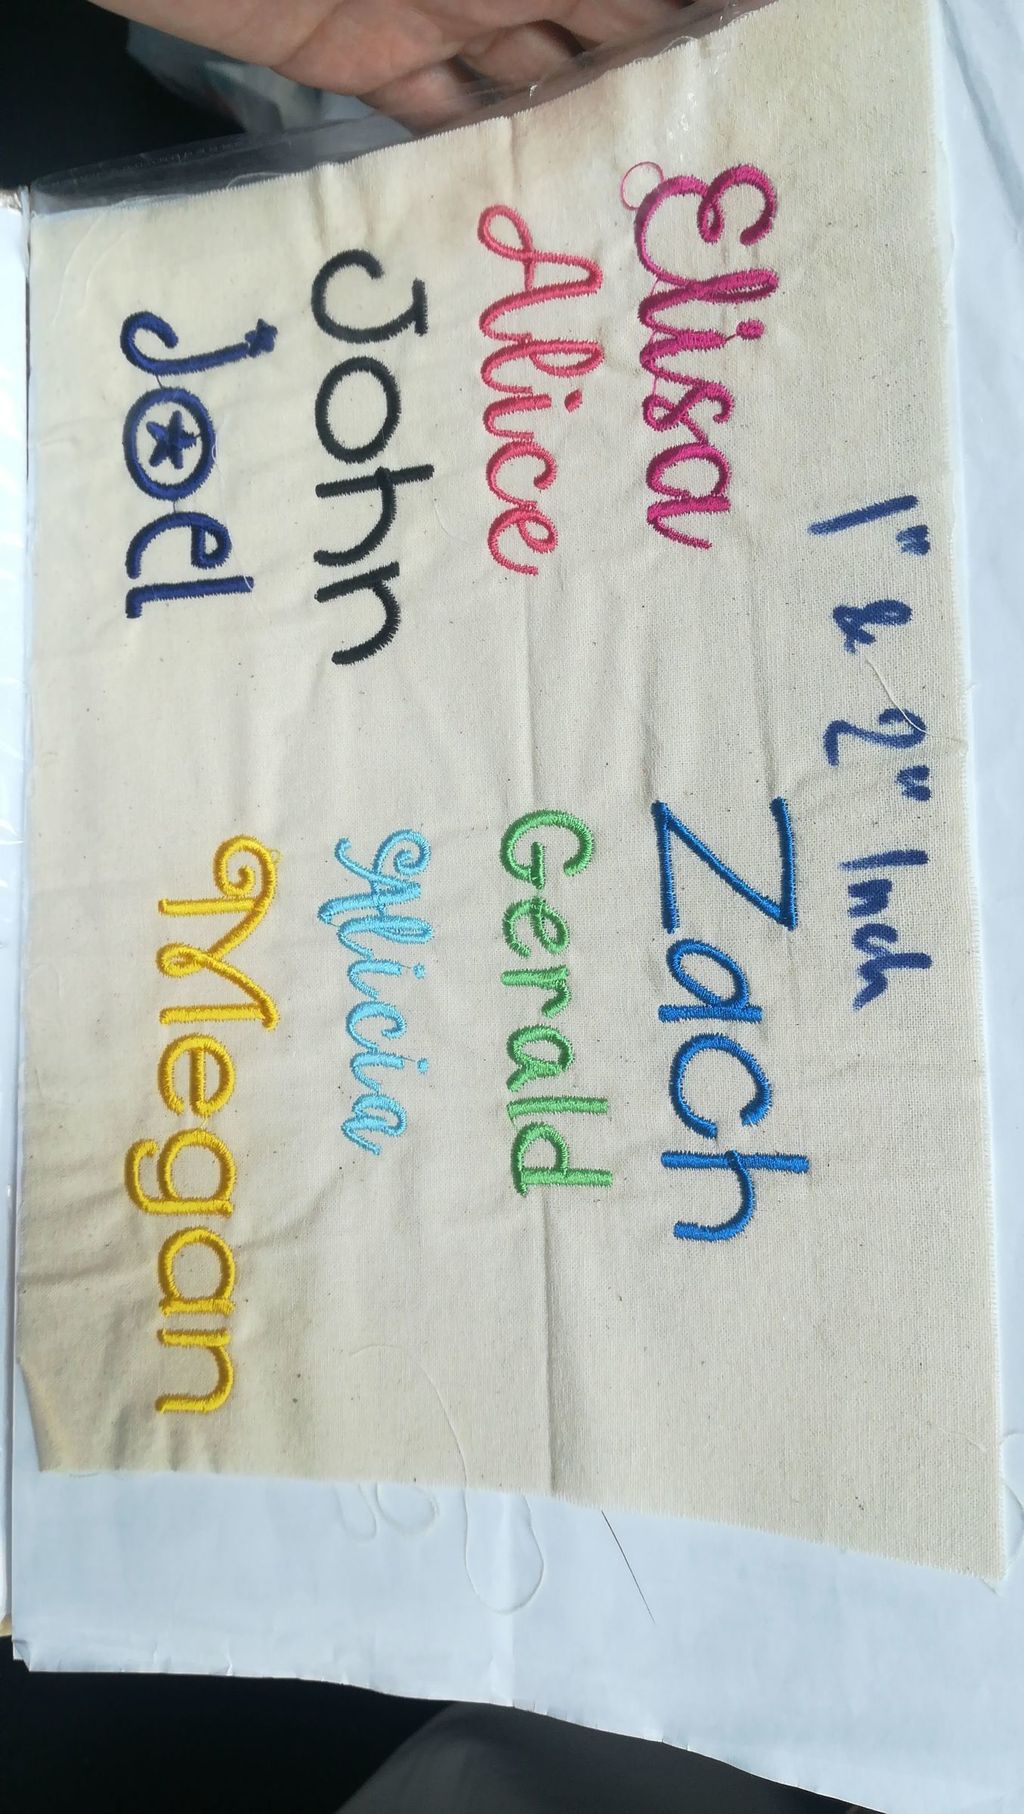 1" & 2" Inch
Elisa
Zach
Alice
Gerald
John
Alicia
Joel
Megan